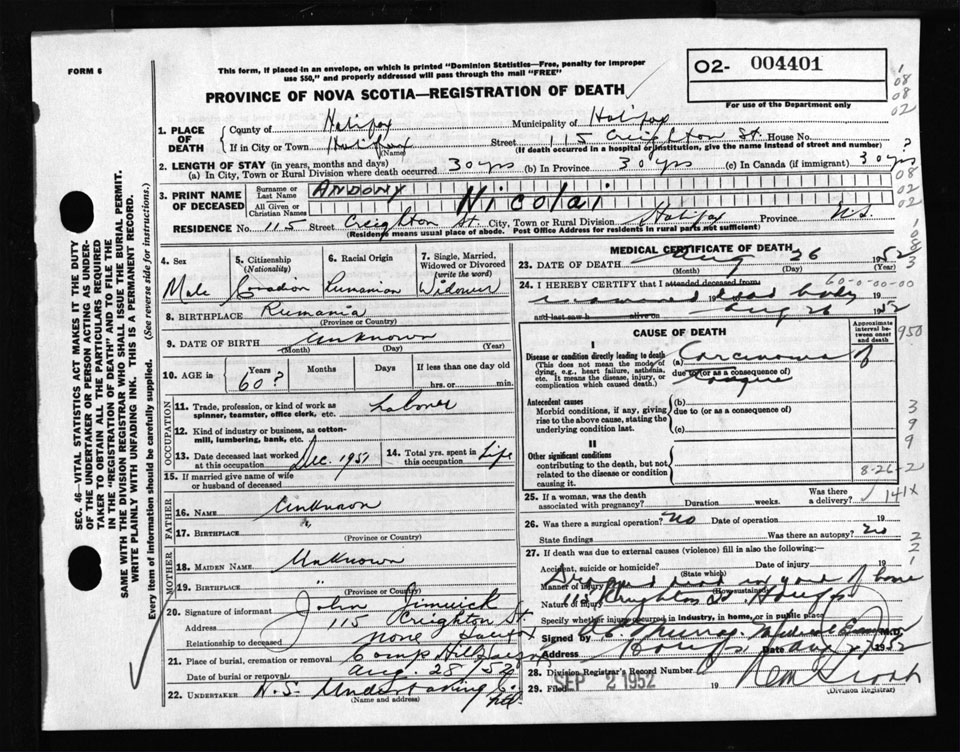 FORM 6
This form, if placed in an envelope, on which is printed "Dominion Statistics—Free, penalty for improper
use $50," and properly addressed will pass through the mail "FREE"
02- 004401
PROVINCE OF NOVA SCOTIA—REGISTRATION OF DEATH
For use of the Department only
1. PLACE OF DEATH { County of Halifax Municipality of Halifax
If in City or Town Halifax (Name) Street 115 Creighton St. House No. ?
(If death occurred in a hospital or institution, give the name instead of street and number)
2. LENGTH OF STAY (in years, months and days)
(a) In City, Town or Rural Division where death occurred 30 yrs (b) In Province 30 yrs (c) In Canada (if immigrant) 30 yrs
3. PRINT NAME OF DECEASED { Surname or Last Name ANDONY
All Given or Christian Names Nicolai
RESIDENCE No. 115 Street Creighton St. City, Town or Rural Division Halifax Province N.S.
(Residence means usual place of abode. Post Office Address for residents in rural parts not sufficient)
4. Sex Male
5. Citizenship (Nationality) Canadian
6. Racial Origin Rumanian
7. Single, Married, Widowed or Divorced (write the word) Widower
8. BIRTHPLACE Rumania
(Province or Country)
9. DATE OF BIRTH Unknown
(Month) (Day) (Year)
10. AGE in Years 60? Months Days If less than one day old
hrs. or min.
OCCUPATION
11. Trade, profession, or kind of work as spinner, teamster, office clerk, etc. Laborer
12. Kind of industry or business, as cotton-mill, lumbering, bank, etc.
13. Date deceased last worked at this occupation Dec. 1951 14. Total yrs. spent in this occupation Life
15. If married give name of wife or husband of deceased
FATHER
16. NAME Unknown
17. BIRTHPLACE "
(Province or Country)
MOTHER
18. MAIDEN NAME Unknown
19. BIRTHPLACE "
(Province or Country)
20. Signature of informant John
Address 115 Creighton St.
Relationship to deceased None Halifax
21. Place of burial, cremation or removal Camp Hill
Date of burial or removal Aug. 28 '52
22. UNDERTAKER N.S. Undertaking Co. Ltd.
(Name and address)
MEDICAL CERTIFICATE OF DEATH
23. DATE OF DEATH Aug 26 1952
(Month) (Day) (Year)
24. I HEREBY CERTIFY that I attended deceased from 60-0-00-00
19 dead body 19
and last saw h alive on Aug 26 1952
CAUSE OF DEATH
Approximate interval between onset and death
I
Disease or condition directly leading to death (a) Carcinoma of
(This does not mean the mode of dying, e.g., heart failure, asthenia, etc. It means the disease, injury, or complication which caused death.) due to (or as a consequence of) tongue
Antecedent causes (b)
Morbid conditions, if any, giving rise to the above cause, stating the underlying condition last. due to (or as a consequence of)
(c)
II
Other significant conditions
contributing to the death, but not related to the disease or condition causing it. 8-26-2
25. If a woman, was the death associated with pregnancy? Duration weeks. Was there a delivery? 141X
26. Was there a surgical operation? no Date of operation 19
State findings Was there an autopsy? no
27. If death was due to external causes (violence) fill in also the following:—
Accident, suicide or homicide? (State which) Date of injury 19
Manner of injury Dropped dead in yard of home
(How sustained)
Nature of injury 115 Creighton St
Specify whether injury occurred in industry, in home, or in public place
Signed by Murray Medical M.D.
Address Date Aug 27 1952
28. Division Registrar's Record Number
29. Filed SEP 2 1952 19
(Division Registrar)
SEC. 46—VITAL STATISTICS ACT MAKES IT THE DUTY
OF THE UNDERTAKER OR PERSON ACTING AS UNDER-
TAKER TO OBTAIN ALL THE PARTICULARS REQUIRED
IN THE "REGISTRATION OF DEATH" AND TO FILE THE
SAME WITH THE DIVISION REGISTRAR WHO SHALL ISSUE THE BURIAL PERMIT.
WRITE PLAINLY WITH UNFADING INK. THIS IS A PERMANENT RECORD.
Every item of information should be carefully supplied. (See reverse side for instructions.)